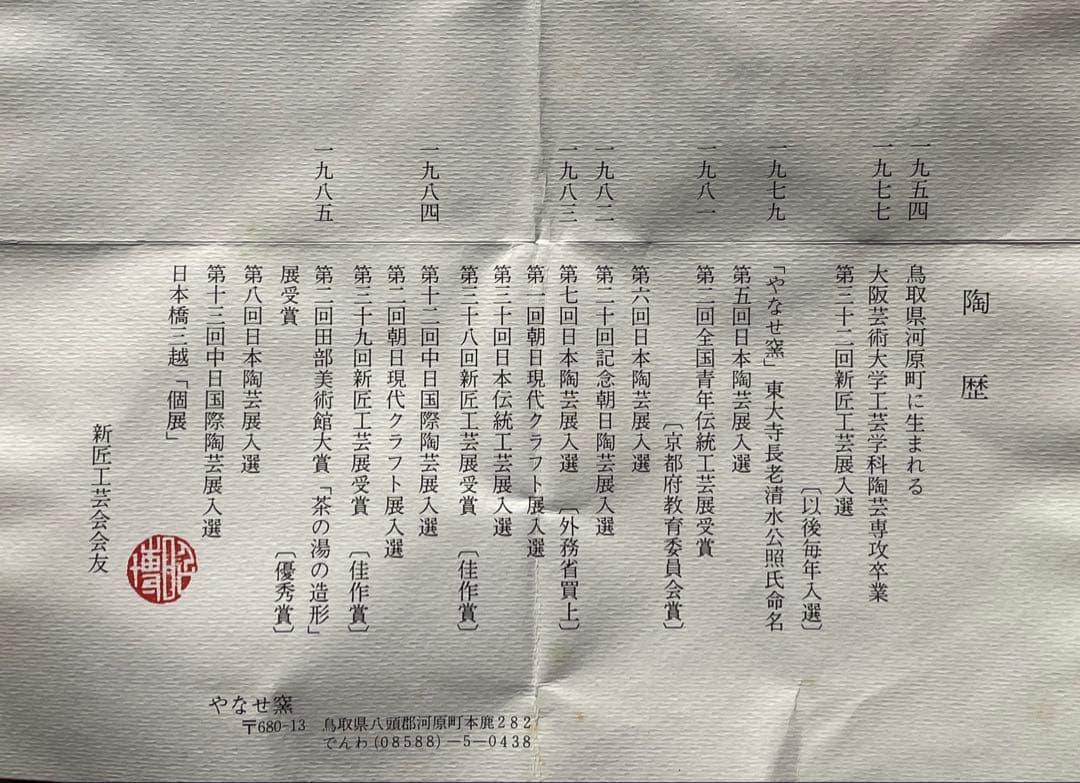 陶歴
一九五四 鳥取県河原町に生まれる
一九七七 大阪芸術大学工芸学科陶芸専攻卒業
第三十二回新匠工芸展入選
〔以後毎年入選〕
一九七九 「やなせ窯」東大寺長老清水公照氏命名
第五回日本陶芸展入選
一九八一 第二回全国青年伝統工芸展受賞
〔京都府教育委員会賞〕
第六回日本陶芸展入選
一九八二 第二十回記念朝日陶芸展入選
一九八三 第七回日本陶芸展入選 〔外務省買上〕
第一回朝日現代クラフト展入選
第三十回日本伝統工芸展入選
第三十八回新匠工芸展受賞 〔佳作賞〕
一九八四 第十二回中日国際陶芸展入選
第二回朝日現代クラフト展入選
第三十九回新匠工芸展受賞 〔佳作賞〕
一九八五 第二回田部美術館大賞「茶の湯の造形」
展受賞 〔優秀賞〕
第八回日本陶芸展入選
第十三回中日国際陶芸展入選
日本橋三越「個展」
新匠工芸会会友
やなせ窯
〒680-13 鳥取県八頭郡河原町本鹿282
でんわ(08588)―5―0438